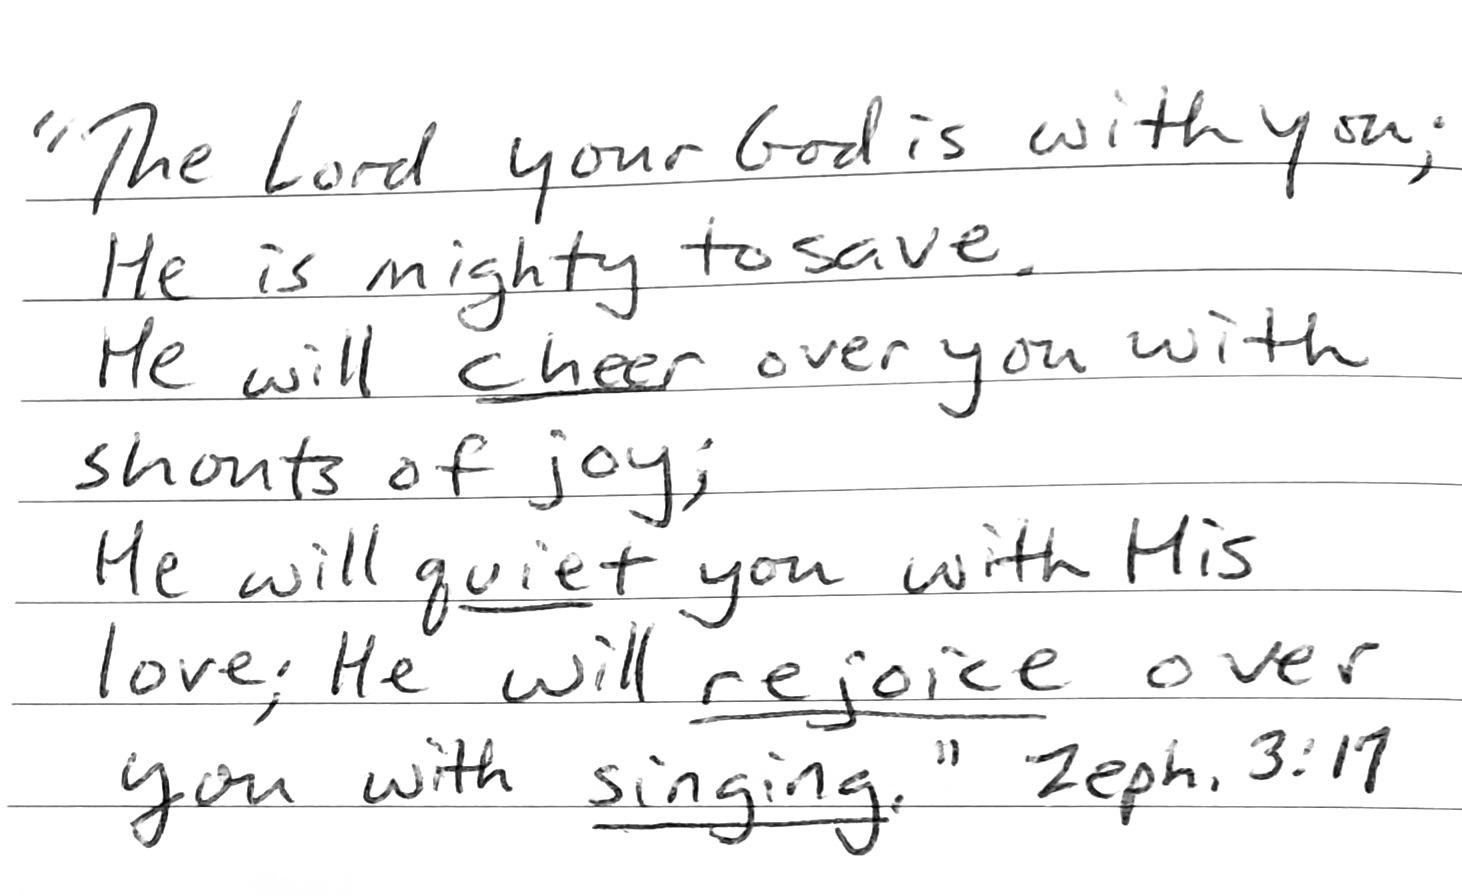 "The Lord your God is with you;
He is mighty to save.
He will cheer over you with
shouts of joy;
He will quiet you with His
love; He will rejoice over
you with singing." Zeph. 3:17